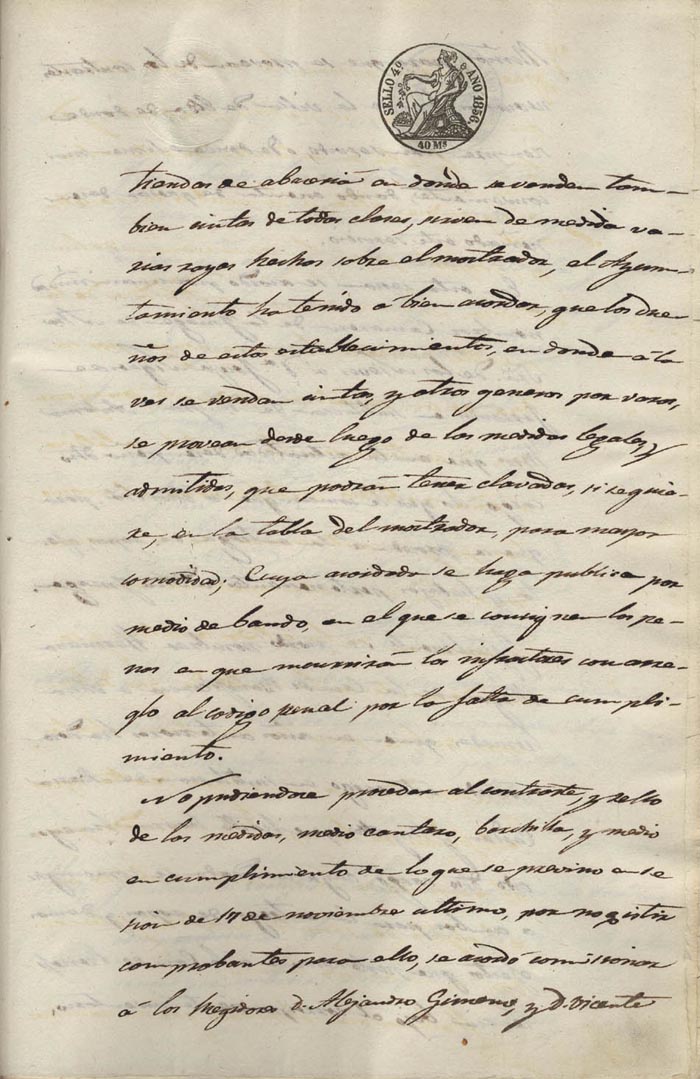 SELLO 4º AÑO 1856.
40 Ms
tiendas de abaceria en donde se venden tam-
bien cintas de todas clases, sirven de medida va-
rias rayas hechas sobre el mostrador, el Ayun-
tamiento ha tenido a bien acordar, que los due-
ños de estos establecimientos, en donde á la
vez se vendan cintas, y otros generos por varas,
se provean desde luego de las medidas legales, y
admitidas, que podrán tener clavadas, si se quie-
re, en la tabla del mostrador, para mayor
comodidad; Cuyo acordado se haga publico por
medio de bando, en el que se consignen las pe-
nas en que incurrirán los infractores con arre-
glo al codigo penal por la falta de cumpli-
miento.
No pudiendose proceder al contraste, y sello
de las medidas, medio cantaro, barchilla, y medio
en cumplimiento de lo que se previno en se
sion de 17 de noviembre ultimo, por no existir
comprobantes para ello, se acordó comisionar
á los Regidores D. Alejandro Gimeno, y D. Vicente